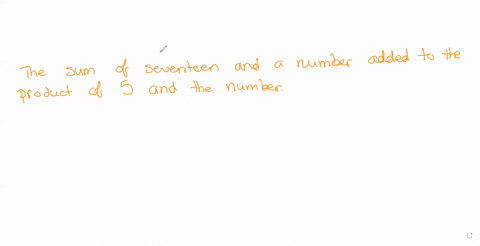 The sum of seventeen and a number added to the
product of 5 and the number.